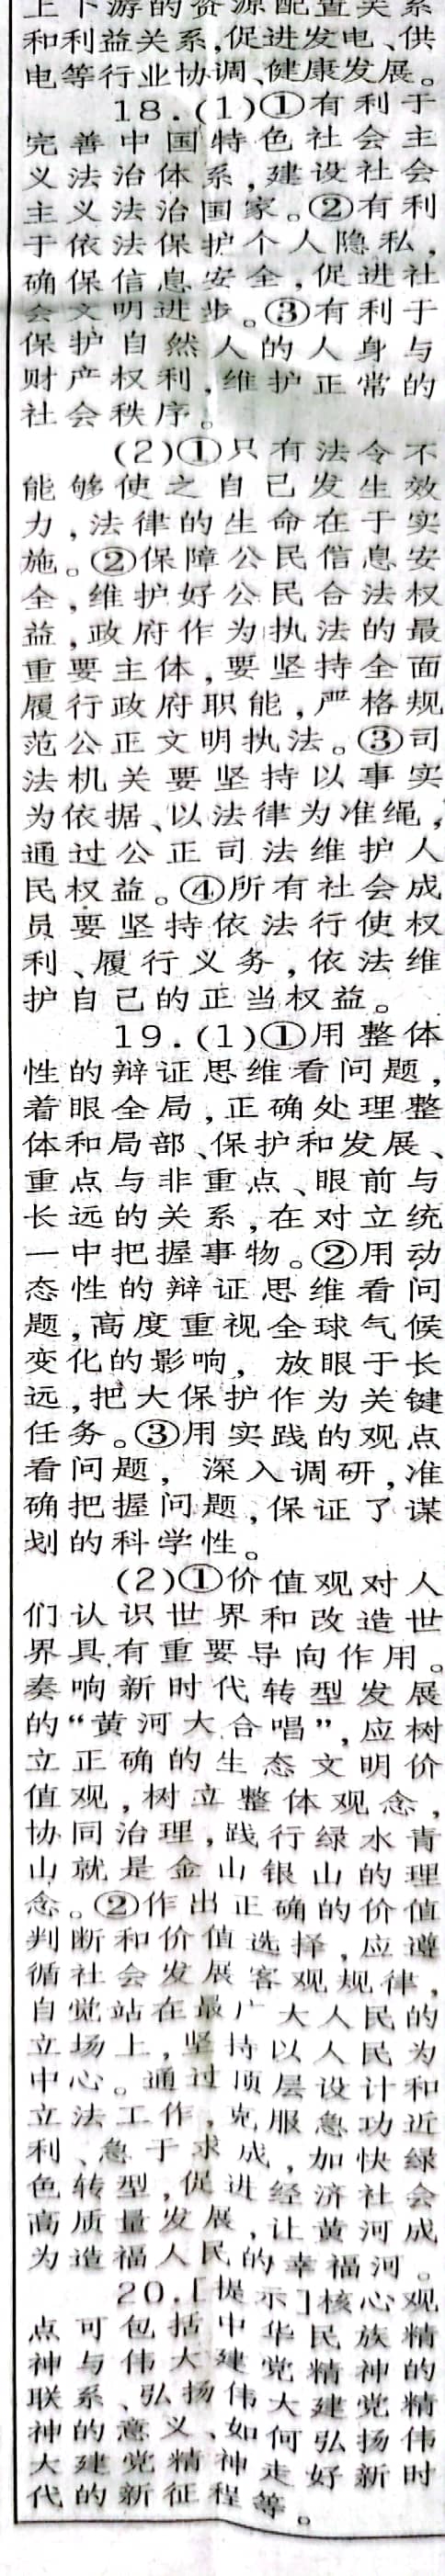 上下游的资源配置关系
和利益关系,促进发电、供
电等行业协调、健康发展。
18.(1)①有利于
完善中国特色社会主
义法治体系,建设社会
主义法治国家。②有利
于依法保护个人隐私,
确保信息安全,促进社
会文明进步。③有利于
保护自然人的人身与
财产权利,维护正常的
社会秩序。
(2)①只有法令不
能够使之自己发生效
力,法律的生命在于实
施。②保障公民信息安
全,维护好公民合法权
益,政府作为执法的最
重要主体,要坚持全面
履行政府职能,严格规
范公正文明执法。③司
法机关要坚持以事实
为依据、以法律为准绳,
通过公正司法维护人
民权益。④所有社会成
员要坚持依法行使权
利、履行义务,依法维
护自己的正当权益。
19.(1)①用整体
性的辩证思维看问题,
着眼全局,正确处理整
体和局部、保护和发展、
重点与非重点、眼前与
长远的关系,在对立统
一中把握事物。②用动
态性的辩证思维看问
题,高度重视全球气候
变化的影响,放眼于长
远,把大保护作为关键
任务。③用实践的观点
看问题,深入调研,准
确把握问题,保证了谋
划的科学性。
(2)①价值观对人
们认识世界和改造世
界具有重要导向作用。
奏响新时代转型发展
的“黄河大合唱”,应树
立正确的生态文明价
值观,树立整体观念,
协同治理,践行绿水青
山就是金山银山的理
念。②作出正确的价值
判断和价值选择,应遵
循社会发展客观规律,
自觉站在最广大人民的
立场上,坚持以人民为
中心。通过顶层设计和
立法工作,克服急功近
利、急于求成,加快绿
色转型,促进经济社会
高质量发展,让黄河成
为造福人民的幸福河。
20.[提示]核心观
点可包括中华民族精
神与伟大建党精神的
联系、弘扬伟大建党精
神的意义、如何弘扬伟
大建党精神走好新时
代的新征程等。